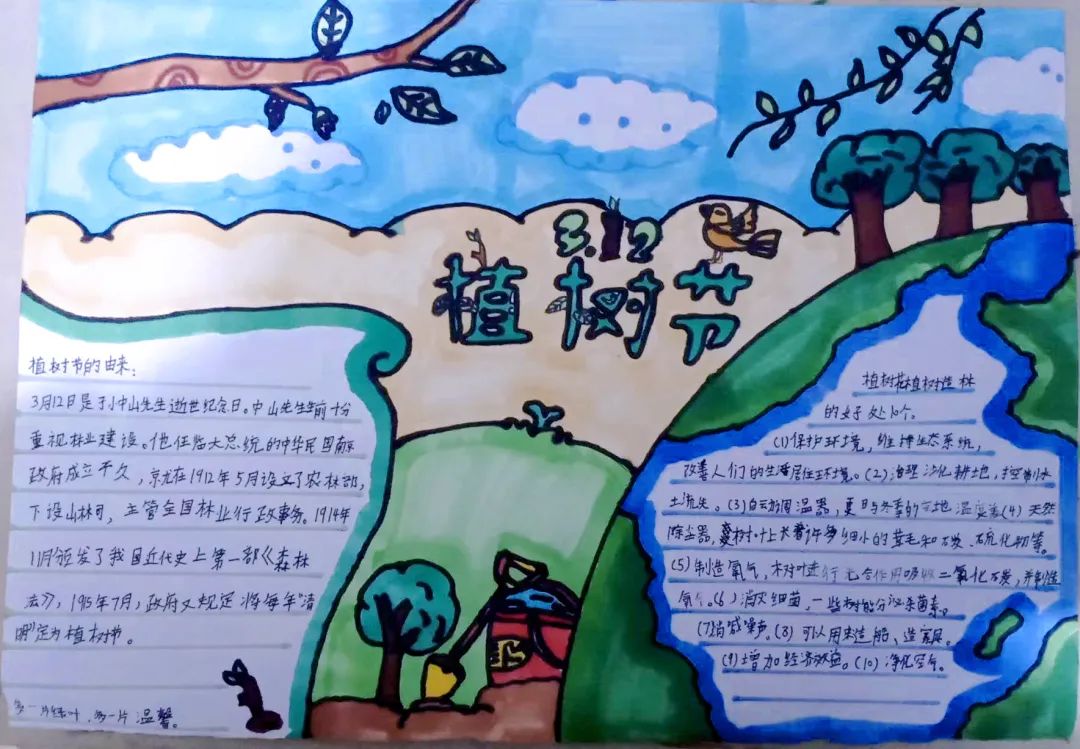 3.12
植树节
植树节的由来：
3月12日是孙中山先生逝世纪念日。中山先生生前十分
重视林业建设。他任临时大总统的中华民国南京
政府成立不久，就在1912年5月设立了农林部，
下设山林司，主管全国林业行政事务。1914年
11月颁发了我国近代史上第一部《森林
法》，1915年7月，政府又规定将每年"清
明"定为植树节。
多一片绿叶，多一片温馨。
植树造林
的好处10个。
(1)保护环境，维护生态系统，
改善人们的生活居住环境。(2)治理沙化耕地，控制水
土流失。(3)自动调温器，夏日与冬季的 温度差(4)天然
除尘器，树叶上长着许多细小的茸毛和
(5)制造氧气，树叶进行光合作用吸收二氧化碳，并制造
氧气。(6)消灭细菌，一些树能分泌杀菌素。
(7)消减噪声。(8)可以用来造船、造家具。
(9)增加经济效益。(10)净化空气。